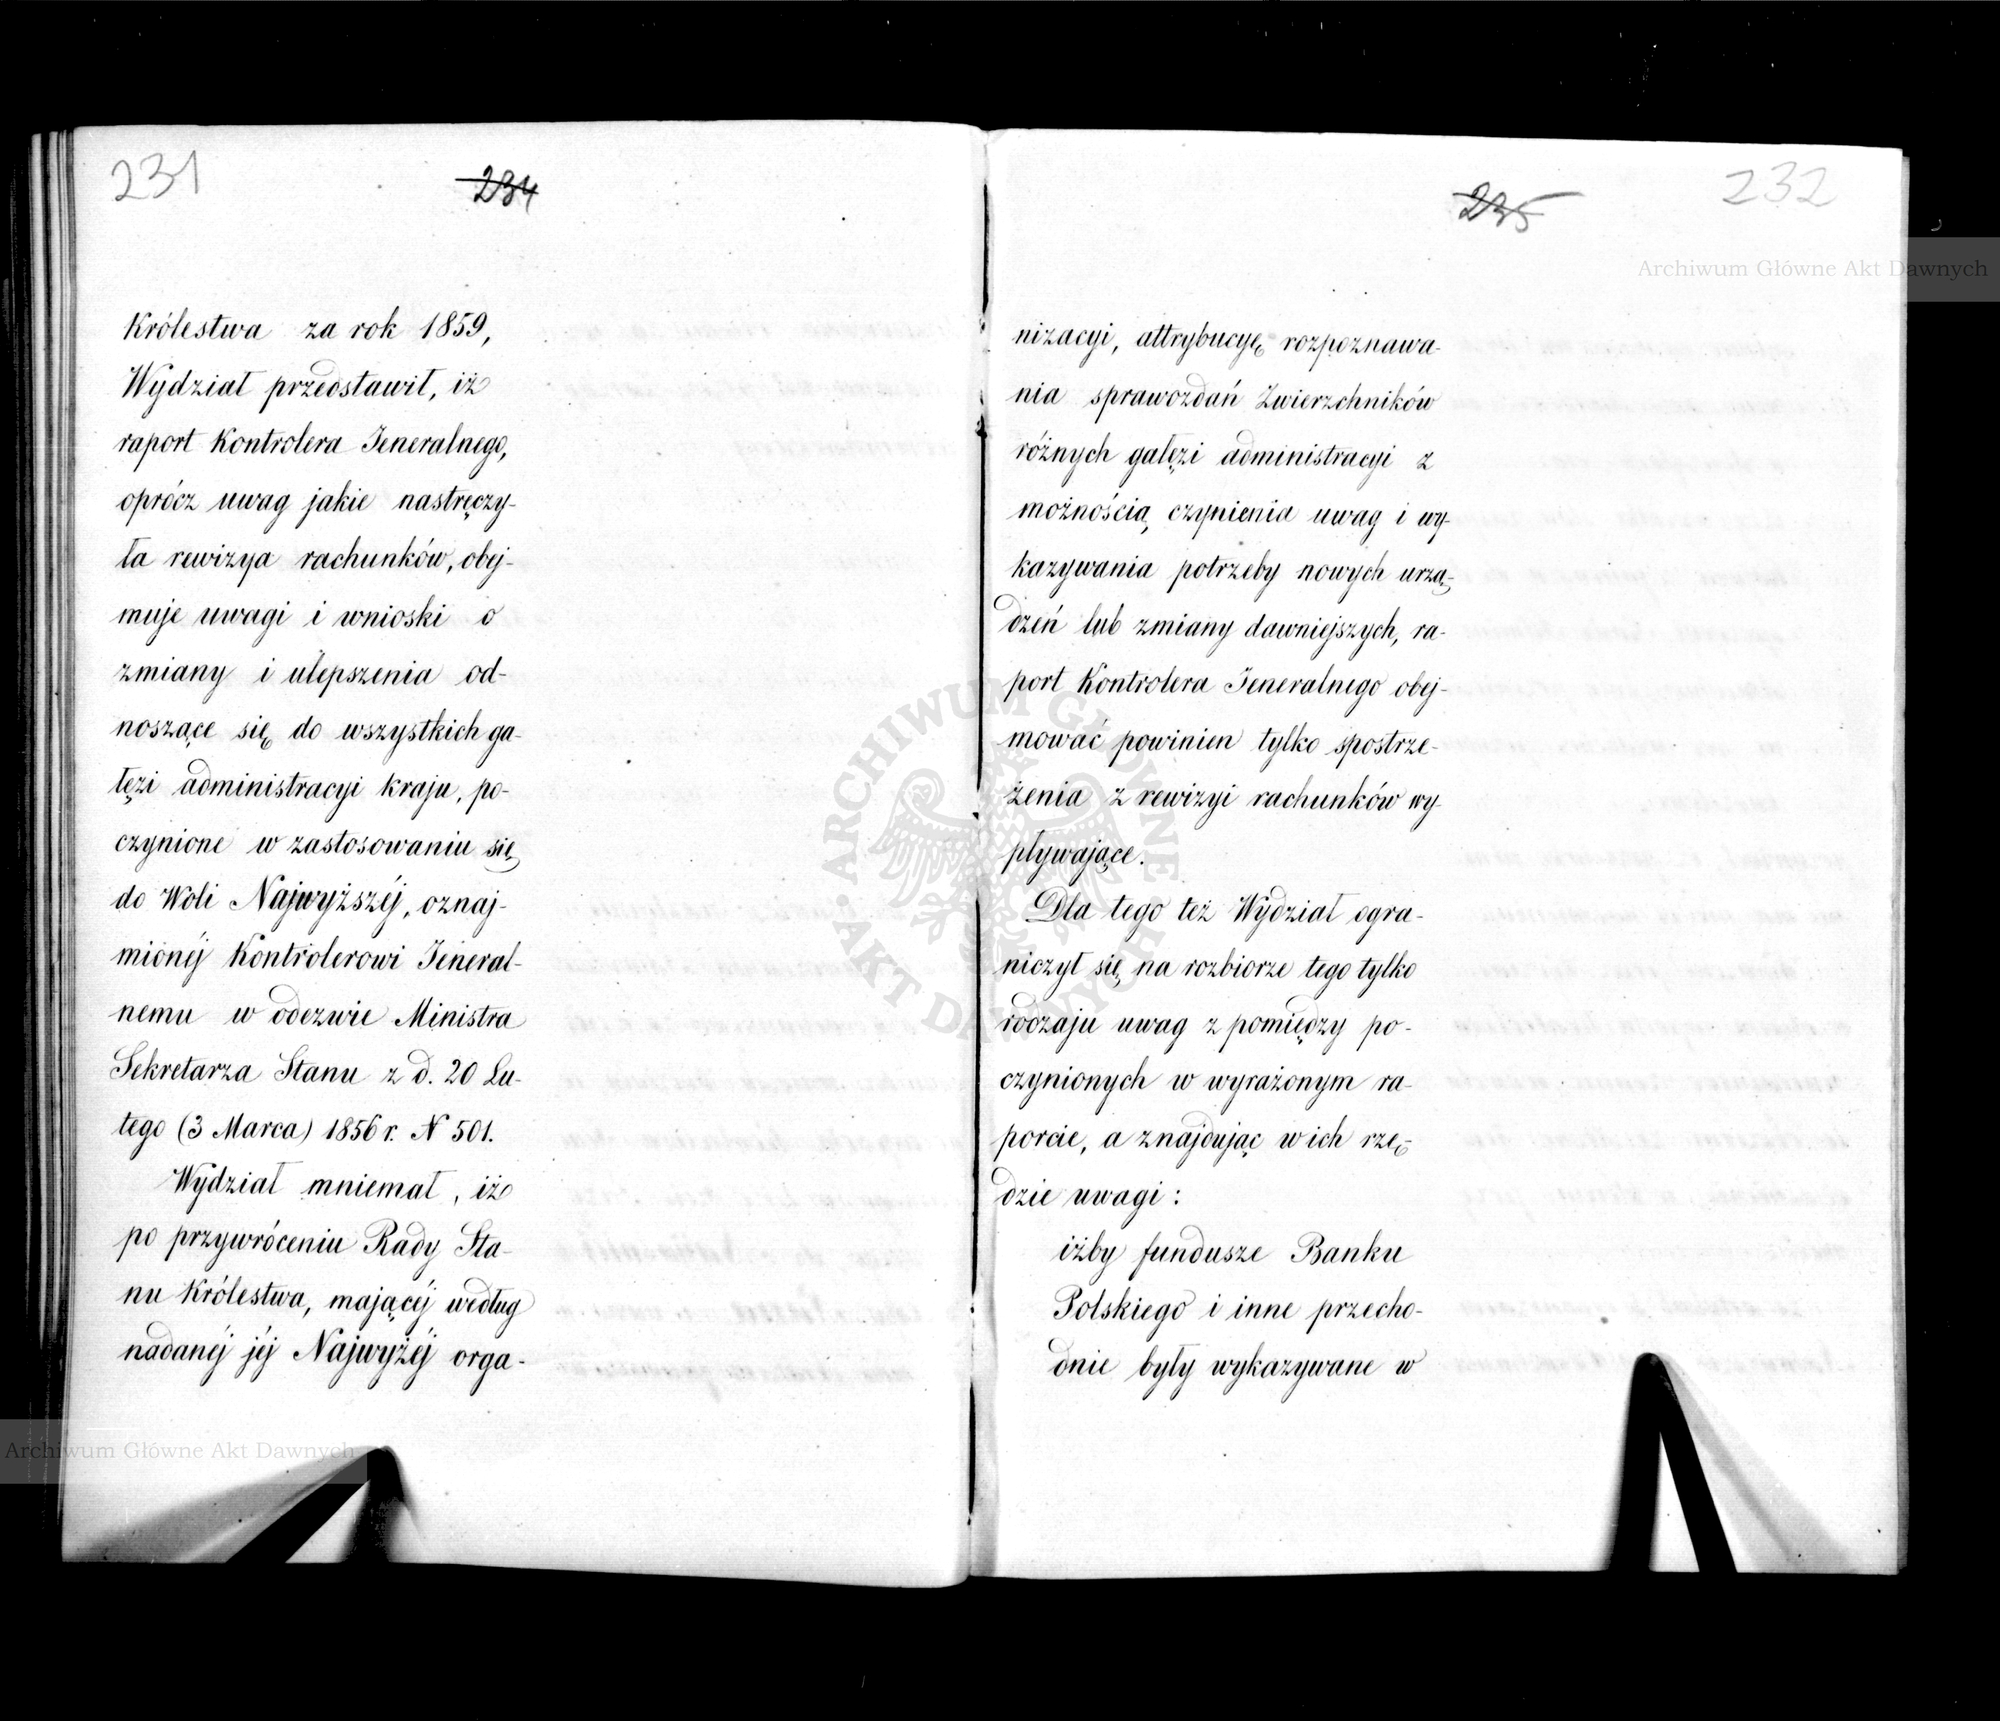 231
234
Królestwa za rok 1859,
Wydział przedstawił, iż
raport Kontrolera Jeneralnego,
oprócz uwag jakie nastręczy-
ła rewizya rachunków, obej-
muje uwagi i wnioski o
zmiany i ulepszenia od-
noszące się do wszystkich ga-
łęzi administracyi kraju, po-
czynione w zastosowaniu się
do Woli Najwyższéj, oznaj-
mionéj Kontrolerowi Jeneral-
nemu w odezwie Ministra
Sekretarza Stanu z d. 20 Lu-
tego (3 Marca) 1856 r. N 501.
Wydział mniemał, iż
po przywróceniu Rady Sta-
nu Królestwa, mającéj według
nadanéj jéj Najwyżéj orga-
235
232
nizacyi, attrybucyę rozpoznawa-
nia sprawozdań Zwierzchników
różnych gałęzi administracyi z
możnością czynienia uwag i wy-
kazywania potrzeby nowych urzą-
dzeń lub zmiany dawniejszych, ra-
port Kontrolera Jeneralnego obej-
mować powinien tylko spostrze-
żenia z rewizyi rachunków wy-
pływające.
Dla tego też Wydział ogra-
niczył się na rozbiorze tego tylko
rodzaju uwag z pomiędzy po-
czynionych w wyrażonym ra-
porcie, a znajdując w ich rzę-
dzie uwagi:
iżby fundusze Banku
Polskiego i inne przecho-
dnie były wykazywane w
Archiwum Główne Akt Dawnych
ARCHIWUM GŁÓWNE AKT DAWNYCH
Archiwum Główne Akt Dawnych